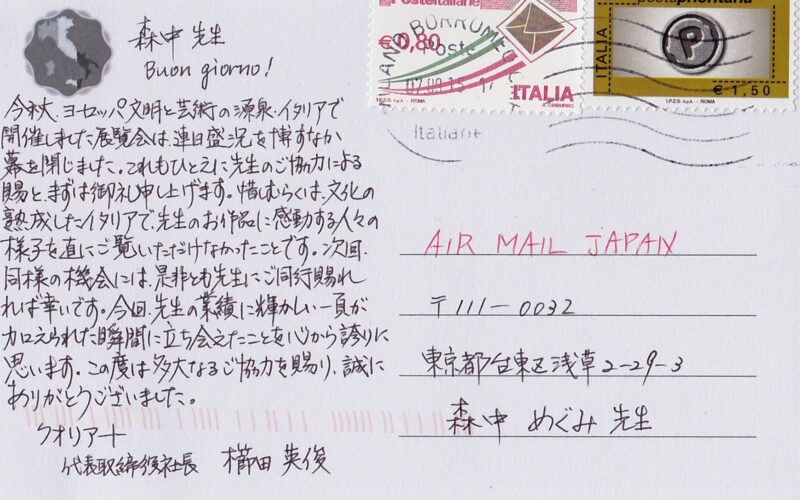 森中 先生
Buon giorno!
今秋、ヨーロッパ文明と芸術の源泉・イタリアで
開催しました展覧会は、連日盛況を博すなか
幕を閉じました。これもひとえに先生のご協力による
賜と、まずは御礼申し上げます。惜しむらくは、文化の
熟成したイタリアで、先生のお作品に感動する人々の
様子を直にご覧いただけなかったことです。次回、
同様の機会には、是非とも先生にご同行賜れ
れば幸いです。今回、先生の業績に輝かしい一頁が
加えられた瞬間に立ち会えたことを心から誇りに
思います。この度は多大なるご協力を賜り、誠に
ありがとうございました。
クオリアート
代表取締役社長 櫛田 英俊
Posteitaliane
€0,80
ITALIA
I.P.Z.S. S.p.A. - ROMA
A. CIABURRO
postaprioritaria
ITALIA
P
I.P.Z.S. S.p.A. - ROMA
€ 1,50
BORROMEO
Poste
Italiane
AIR MAIL JAPAN
〒111-0032
東京都台東区浅草2-29-3
森中 めぐみ 先生